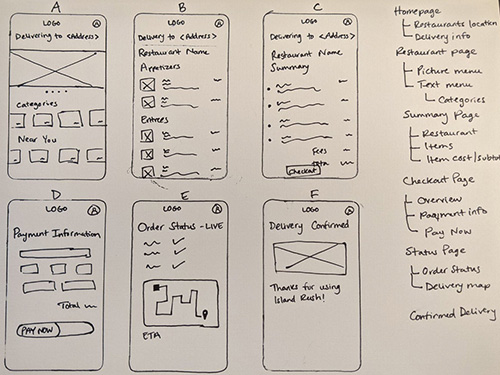 A
LOGO
Delivering to <Address>
Categories
Near You
B
LOGO
Delivery to <Address>
Restaurant Name
Appetizers
Entrees
C
LOGO
Delivery to <Address>
Restaurant Name
Summary
Fees
Total
Checkout
D
LOGO
Payment Information
Total
PAY NOW
E
LOGO
Order Status - LIVE
ETA
F
LOGO
Delivery Confirmed
Thanks for using
Island Rush!
Homepage
Restaurants location
Delivery info
Restaurant page
Picture menu
Text menu
Categories
Summary Page
Restaurant
Items
Item cost/subtot
Checkout Page
Overview
Payment info
Pay Now
Status Page
Order Status
Delivery map
Confirmed Delivery